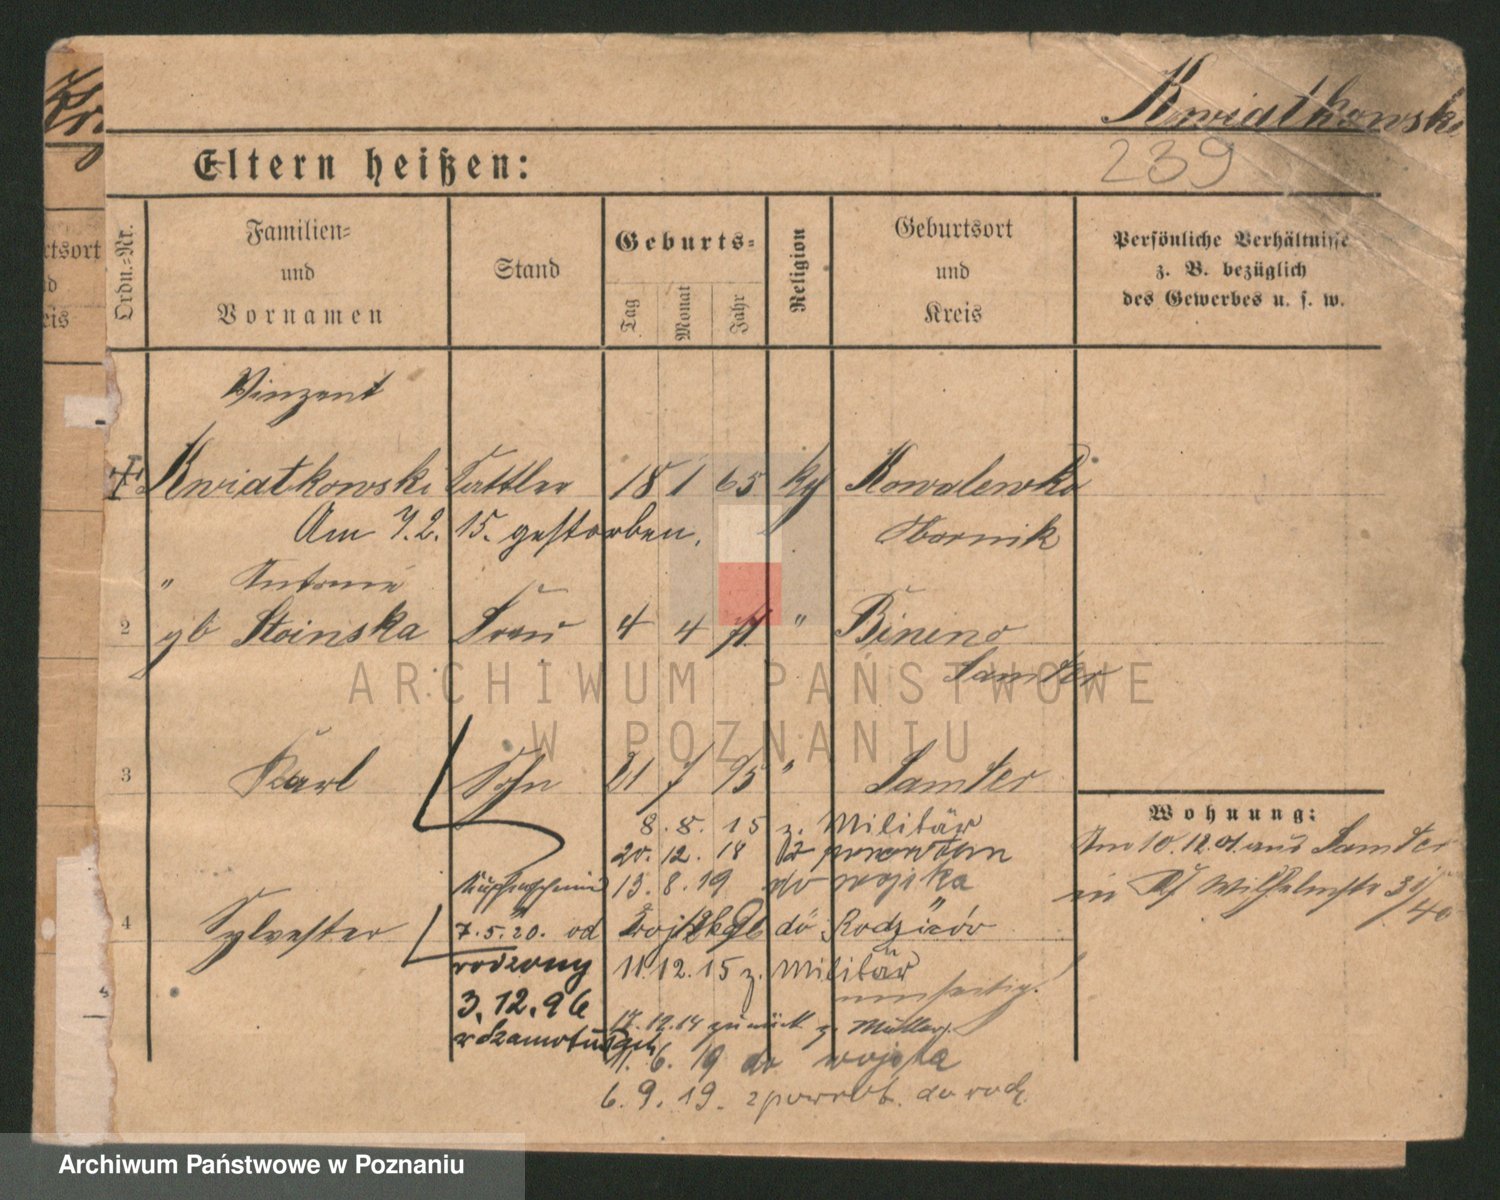 Kwiatkowski
239
Eltern heißen:
Ordn.-Nr.
Familien-
und
Vornamen
Stand
Geburts-
Tag
Monat
Jahr
Religion
Geburtsort
und
Kreis
Persönliche Verhältnisse
z. B. bezüglich
des Gewerbes u. s. w.
Vinzent
Kwiatkowski Sattler 18 1 65 kg Kowalewko
Am 7.2.15. gestorben. Obornik
" Antonie
2 gb Stoinska Frau 4 4 71 "
Samter
3 Karl Sohn 21 7 95 " Samter
8. 8. 15 z. Militär
20. 12. 18
13. 8. 19 do wojska
4 Sylvester 7.5.20. od do Rodziców
rodzony 11.12.15 z. Militär
3.12.96
zurück z. Mutter.
6. 19 do wojska
6. 9. 19. z powrot. do rodz.
Wohnung:
Am 10.12.01. aus Samter
in Wilhelmstr 31/40
ARCHIWUM PAŃSTWOWE
W POZNANIU
Archiwum Państwowe w Poznaniu